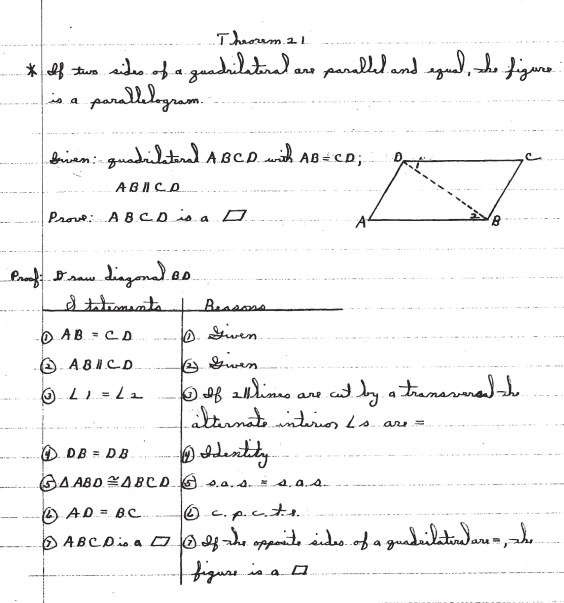 Theorem 21
* If two sides of a quadrilateral are parallel and equal, the figure
is a parallelogram.
Given: quadrilateral ABCD with AB = CD;
AB ∥ CD
Prove: ABCD is a ▱
D 1 C
A 2 B
Proof: Draw diagonal BD
Statements Reasons
① AB = CD ① Given
② AB ∥ CD ② Given
③ ∠1 = ∠2 ③ If 2 ∥ lines are cut by a transversal the
alternate interior ∠s are =
④ DB = DB ④ Identity
⑤ △ABD ≅ △BCD ⑤ s.a.s. = s.a.s.
⑥ AD = BC ⑥ c.p.c.t.e.
⑦ ABCD is a ▱ ⑦ If the opposite sides of a quadrilateral are =, the
figure is a ▱